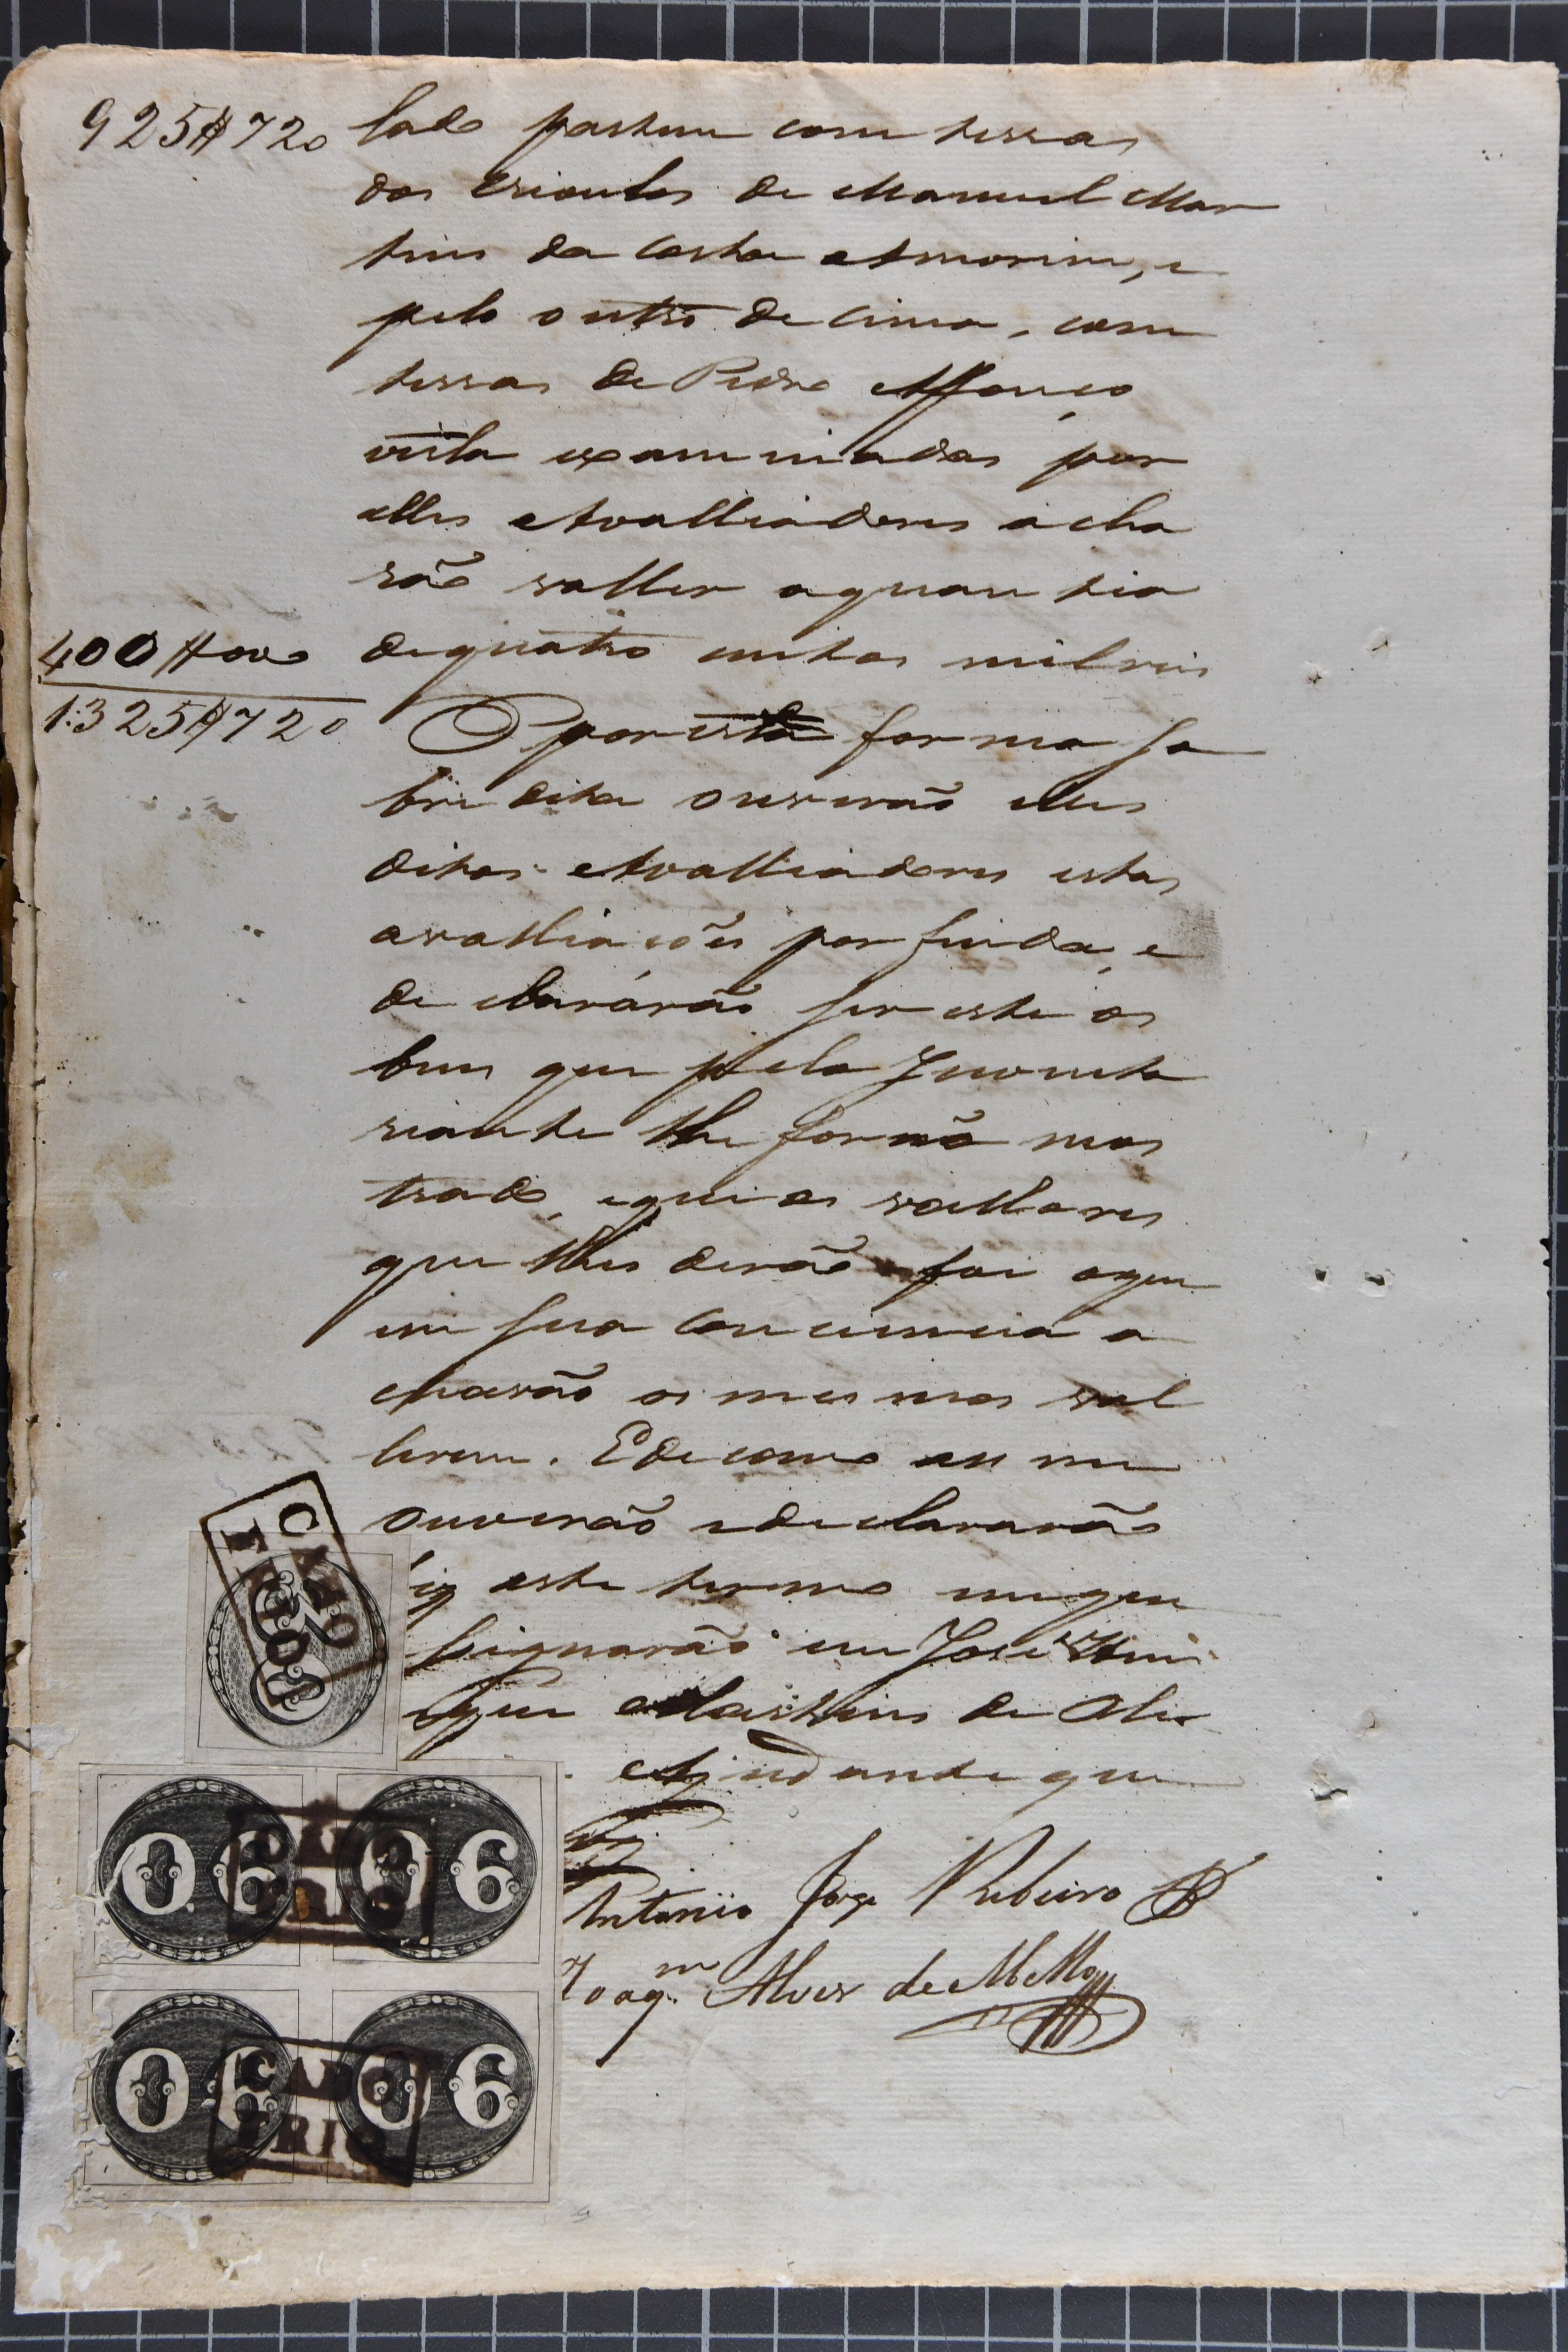 925$720 lado partem com terras
dos erioulos de Manuel Mar
tins da Costa Amorim, e
pelo outro de cima, com
terras de Pedro Affonço,
vista examinadas por
elles Avalliadores acha
rão valler aquantia
400$000 dequatro centos milreis
1:325$720 E por esta forma so
bre dita ouverão elles
ditos Avalliadores estas
avalliações por finda, e
de clararão ser este os
bens que pela Inventa
riante lhe forão mos
trado, eque os vallores
que lhes derão foi oque
em sua conciencia a
charão os mesmos val
lerem. Ede como as me
ouverão edeclararão
fiz este termo emque
signarão eu José Hen
que Martins de Oli
Ajudante que
Antonio Jorge Ribeiro
Joaqm. Alves de Mello
CABO
FRIO
O 6 O 6
CABO
FRIO
O 6 O 6
CABO
FRIO